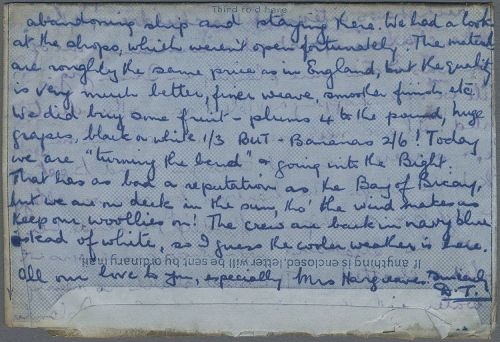 Third fold here
abandoning ship and staying here. We had a look
at the shops, which weren't open fortunately. The materials
are roughly the same price as in England, but the quality
is very much better, finer weave, smoother finish etc
We did buy some fruit - plums 4 to the pound, huge
grapes, black or white 1/3 BUT - Bananas 2/6! Today
we are "turning the bend" & going into the Bight.
That has as bad a reputation as the Bay of Biscay,
but we are on deck in the sun, tho' the wind makes us
keep our woollies on! The crew are back in navy blue
instead of white, so I guess the cooler weather is here.
All our love to you, especially Mrs Hargreaves. Sincerely
D. T.
If anything is enclosed, letter will be sent by ordinary mail